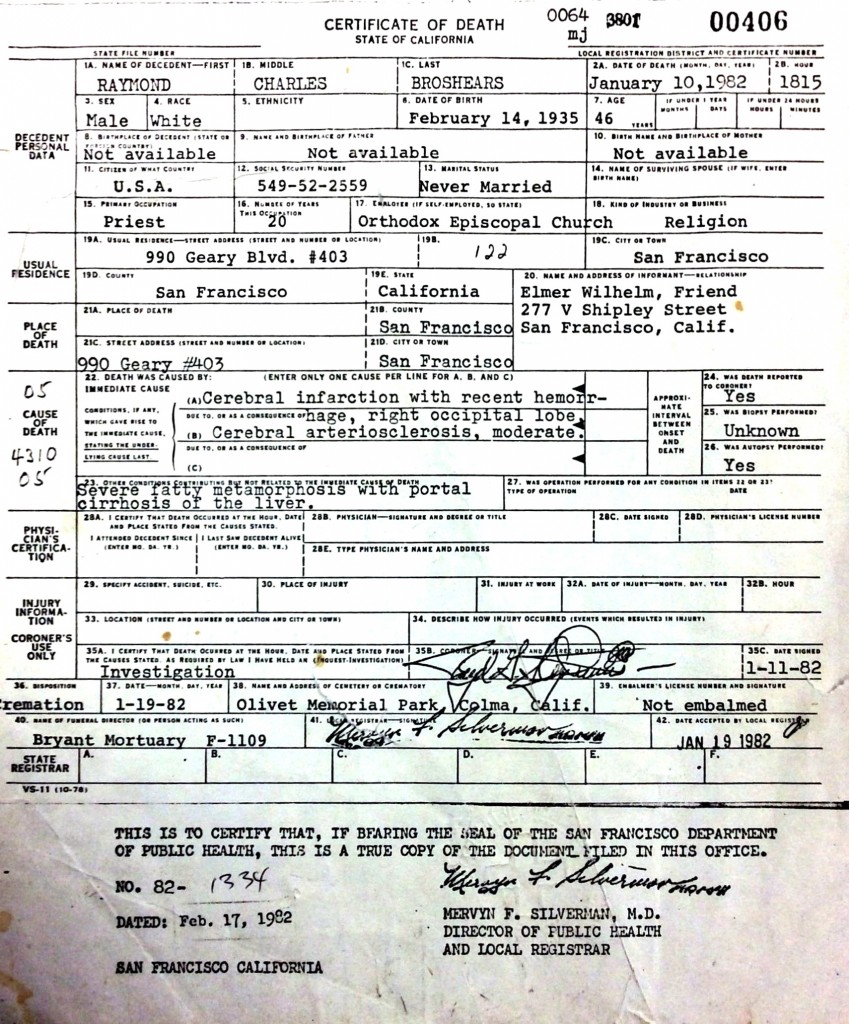 CERTIFICATE OF DEATH
STATE OF CALIFORNIA
0064 3801
mj
00406
STATE FILE NUMBER
LOCAL REGISTRATION DISTRICT AND CERTIFICATE NUMBER
DECEDENT PERSONAL DATA
1A. NAME OF DECEDENT—FIRST 1B. MIDDLE 1C. LAST 2A. DATE OF DEATH (MONTH, DAY, YEAR) 2B. HOUR
RAYMOND CHARLES BROSHEARS January 10,1982 1815
3. SEX 4. RACE 5. ETHNICITY 6. DATE OF BIRTH 7. AGE IF UNDER 1 YEAR IF UNDER 24 HOURS
MONTHS DAYS HOURS MINUTES
Male White February 14, 1935 46 YEARS
8. BIRTHPLACE OF DECEDENT (STATE OR FOREIGN COUNTRY) 9. NAME AND BIRTHPLACE OF FATHER 10. BIRTH NAME AND BIRTHPLACE OF MOTHER
Not available Not available Not available
11. CITIZEN OF WHAT COUNTRY 12. SOCIAL SECURITY NUMBER 13. MARITAL STATUS 14. NAME OF SURVIVING SPOUSE (IF WIFE, ENTER BIRTH NAME)
U.S.A. 549-52-2559 Never Married
15. PRIMARY OCCUPATION 16. NUMBER OF YEARS THIS OCCUPATION 17. EMPLOYER (IF SELF-EMPLOYED, SO STATE) 18. KIND OF INDUSTRY OR BUSINESS
Priest 20 Orthodox Episcopal Church Religion
USUAL RESIDENCE
19A. USUAL RESIDENCE—STREET ADDRESS (STREET AND NUMBER OR LOCATION) 19B. 19C. CITY OR TOWN
990 Geary Blvd. #403 122 San Francisco
19D. COUNTY 19E. STATE 20. NAME AND ADDRESS OF INFORMANT—RELATIONSHIP
San Francisco California Elmer Wilhelm, Friend
277 V Shipley Street
San Francisco, Calif.
PLACE OF DEATH
21A. PLACE OF DEATH 21B. COUNTY
San Francisco
21C. STREET ADDRESS (STREET AND NUMBER OR LOCATION) 21D. CITY OR TOWN
990 Geary #403 San Francisco
CAUSE OF DEATH
05
4310
05
22. DEATH WAS CAUSED BY: (ENTER ONLY ONE CAUSE PER LINE FOR A, B, AND C)
IMMEDIATE CAUSE
(A) Cerebral infarction with recent hemorr-
CONDITIONS, IF ANY, WHICH GAVE RISE TO THE IMMEDIATE CAUSE, STATING THE UNDERLYING CAUSE LAST.
DUE TO, OR AS A CONSEQUENCE OF hage, right occipital lobe.
(B) Cerebral arteriosclerosis, moderate.
DUE TO, OR AS A CONSEQUENCE OF
(C)
APPROXIMATE INTERVAL BETWEEN ONSET AND DEATH
24. WAS DEATH REPORTED TO CORONER?
Yes
25. WAS BIOPSY PERFORMED?
Unknown
26. WAS AUTOPSY PERFORMED?
Yes
23. OTHER CONDITIONS CONTRIBUTING BUT NOT RELATED TO THE IMMEDIATE CAUSE OF DEATH
Severe fatty metamorphosis with portal
cirrhosis of the liver.
27. WAS OPERATION PERFORMED FOR ANY CONDITION IN ITEMS 22 OR 23?
TYPE OF OPERATION DATE
PHYSICIAN'S CERTIFICATION
28A. I CERTIFY THAT DEATH OCCURRED AT THE HOUR, DATE AND PLACE STATED FROM THE CAUSES STATED.
I ATTENDED DECEDENT SINCE (ENTER MO. DA. YR.) I LAST SAW DECEDENT ALIVE (ENTER MO. DA. YR.)
28B. PHYSICIAN—SIGNATURE AND DEGREE OR TITLE 28C. DATE SIGNED 28D. PHYSICIAN'S LICENSE NUMBER
28E. TYPE PHYSICIAN'S NAME AND ADDRESS
INJURY INFORMATION
CORONER'S USE ONLY
29. SPECIFY ACCIDENT, SUICIDE, ETC. 30. PLACE OF INJURY 31. INJURY AT WORK 32A. DATE OF INJURY—MONTH, DAY, YEAR 32B. HOUR
33. LOCATION (STREET AND NUMBER OR LOCATION AND CITY OR TOWN) 34. DESCRIBE HOW INJURY OCCURRED (EVENTS WHICH RESULTED IN INJURY)
35A. I CERTIFY THAT DEATH OCCURRED AT THE HOUR, DATE AND PLACE STATED FROM THE CAUSES STATED. AS REQUIRED BY LAW I HAVE HELD AN (INQUEST-INVESTIGATION)
Investigation
35B. CORONER—SIGNATURE AND DEGREE OR TITLE 35C. DATE SIGNED
1-11-82
36. DISPOSITION 37. DATE—MONTH, DAY, YEAR 38. NAME AND ADDRESS OF CEMETERY OR CREMATORY 39. EMBALMER'S LICENSE NUMBER AND SIGNATURE
remation 1-19-82 Olivet Memorial Park, Colma, Calif. Not embalmed
40. NAME OF FUNERAL DIRECTOR (OR PERSON ACTING AS SUCH) 41. LOCAL REGISTRAR—SIGNATURE 42. DATE ACCEPTED BY LOCAL REGISTRAR
Bryant Mortuary F-1109 Mervyn F. Silverman JAN 19 1982
STATE REGISTRAR
A. B. C. D. E. F.
VS-11 (10-78)
THIS IS TO CERTIFY THAT, IF BEARING THE SEAL OF THE SAN FRANCISCO DEPARTMENT
OF PUBLIC HEALTH, THIS IS A TRUE COPY OF THE DOCUMENT FILED IN THIS OFFICE.
NO. 82- 1334
Mervyn F. Silverman
DATED: Feb. 17, 1982
MERVYN F. SILVERMAN, M.D.
DIRECTOR OF PUBLIC HEALTH
AND LOCAL REGISTRAR
SAN FRANCISCO CALIFORNIA